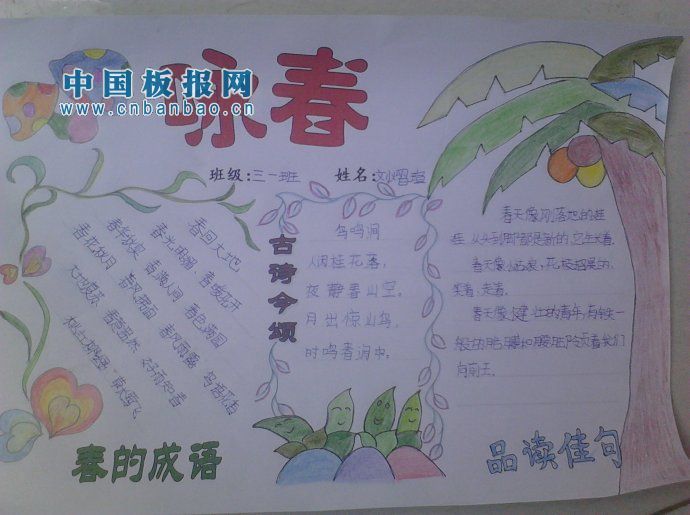 中国板报网
www.cnbanbao.cn
咏春
班级:三一班
姓名:
春回大地
春光明媚 春暖花开
春华秋实 春满人间 春色满园
春花秋月 春风满面 春风雨露 鸟语花香
大地复苏 春意盎然
古诗今颂
鸟鸣涧
人闲桂花落,
夜静春山空。
月出惊山鸟,
时鸣春涧中。
春天像刚落地的娃
娃,从头到脚都是新的,它生长着。
春天像小姑娘,花枝招展的,
笑着,走着。
春天像健壮的青年,有铁一
般的胳膊和腰脚,领着我们
向前去。
春的成语
品读佳句